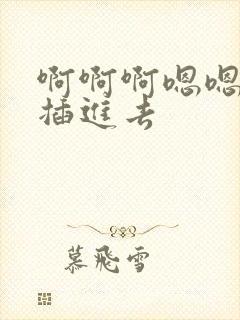 啊啊啊嗯嗯
插進去
慕飛雪